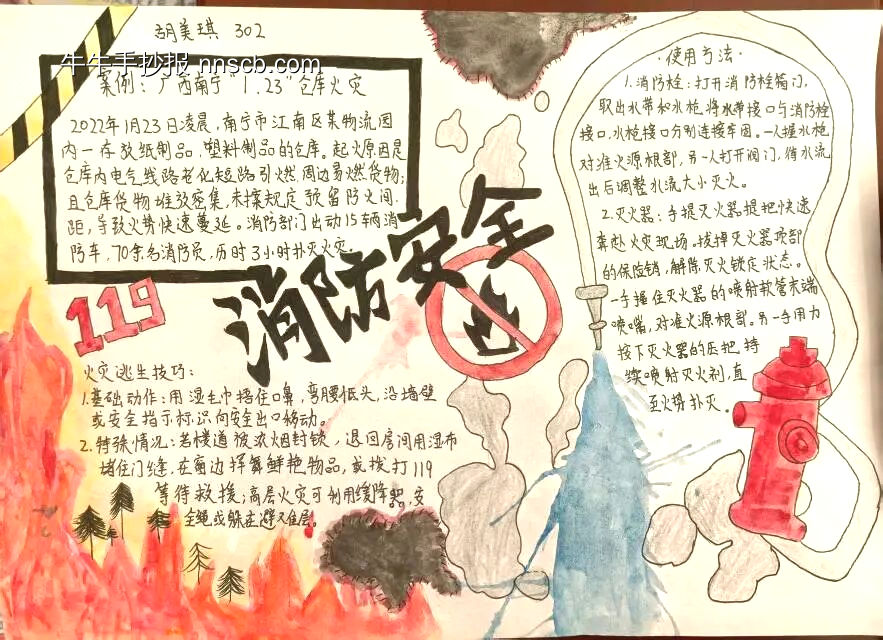 胡美琪 302
牛牛手抄报 nnscb.com
案例：广西南宁“1.23”仓库火灾
2022年1月23日凌晨，南宁市江南区某物流园
内一存放纸制品，塑料制品的仓库。起火原因是
仓库内电气线路老化短路引燃周边易燃货物；
且仓库货物堆放密集，未按规定预留防火间
距，导致火势快速蔓延。消防部门出动15辆消
防车，70余名消防员，历时3小时扑灭火灾。
119
消防安全
火灾逃生技巧：
1.基础动作：用湿毛巾捂住口鼻，弯腰低头，沿墙壁
或安全指示标识向安全出口移动。
2.特殊情况：若楼道被浓烟封锁，退回房间用湿布
堵住门缝，在窗边挥舞鲜艳物品，或拨打119
等待救援；高层火灾可利用缓降器、安
全绳或躲在避难层。
·使用方法·
1.消防栓：打开消防栓箱门，
取出水带和水枪，将水带接口与消防栓
接口，水枪接口分别连接牢固。一人握水枪
对准火源根部，另一人打开阀门，待水流
出后调整水流大小灭火。
2.灭火器：手提灭火器提把快速
奔赴火灾现场。拔掉灭火器顶部
的保险销，解除灭火锁定状态。
一手握住灭火器的喷射软管末端
喷嘴，对准火源根部。另一手用力
按下灭火器的压把，持
续喷射灭火剂，直
至火势扑灭。